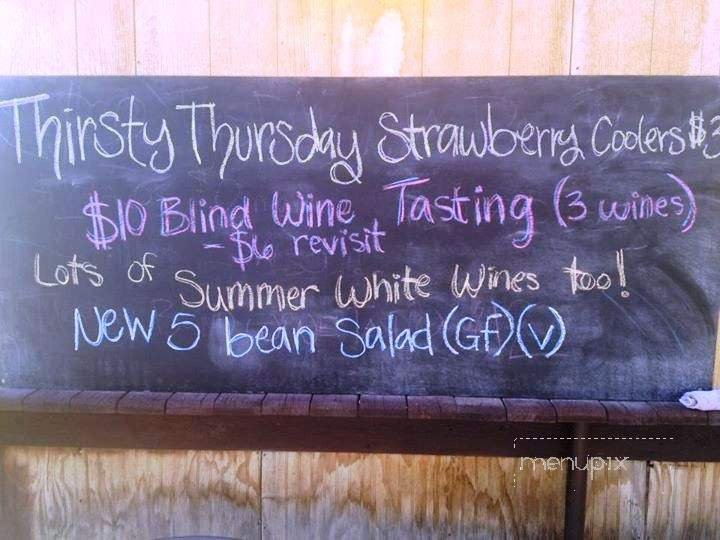 Thirsty Thursday Strawberry Coolers $3
$10 Blind Wine Tasting (3 wines)
- $6 revisit
Lots of Summer White Wines too!
New 5 bean Salad (Gf)(V)
menupix